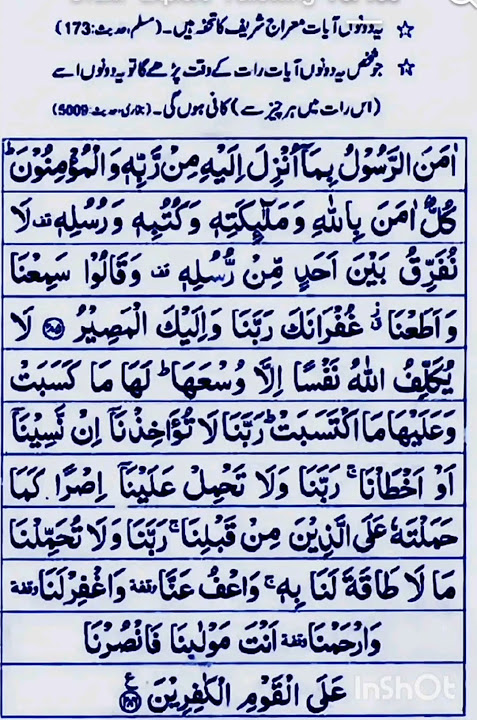 ☆ یہ دونوں آیات معراج شریف کا تحفہ ہیں۔ (مسلم، حدیث: 173)
☆ جو شخص یہ دونوں آیات رات کے وقت پڑھے گا تو یہ دونوں اسے
(اس رات میں ہر چیز سے) کافی ہوں گی۔ (بخاری، حدیث: 5009)
اٰمَنَ الرَّسُوْلُ بِمَاۤ اُنْزِلَ اِلَیْهِ مِنْ رَّبِّهٖ وَ الْمُؤْمِنُوْنَؕ
كُلٌّ اٰمَنَ بِاللّٰهِ وَ مَلٰٓىِٕكَتِهٖ وَ كُتُبِهٖ وَ رُسُلِهٖ۫ لَا
نُفَرِّقُ بَیْنَ اَحَدٍ مِّنْ رُّسُلِهٖ۫ وَ قَالُوْا سَمِعْنَا
وَ اَطَعْنَا٘ۗ غُفْرَانَكَ رَبَّنَا وَ اِلَیْكَ الْمَصِیْرُ ﴿۲۸۵﴾ لَا
یُكَلِّفُ اللّٰهُ نَفْسًا اِلَّا وُسْعَهَاؕ لَهَا مَا كَسَبَتْ
وَ عَلَیْهَا مَا اكْتَسَبَتْؕ رَبَّنَا لَا تُؤَاخِذْنَاۤ اِنْ نَّسِیْنَاۤ
اَوْ اَخْطَاْنَاۚ رَبَّنَا وَ لَا تَحْمِلْ عَلَیْنَاۤ اِصْرًا كَمَا
حَمَلْتَهٗ عَلَى الَّذِیْنَ مِنْ قَبْلِنَاۚ رَبَّنَا وَ لَا تُحَمِّلْنَا
مَا لَا طَاقَةَ لَنَا بِهٖۚ وَ اعْفُ عَنَّا وقفة وَ اغْفِرْ لَنَا وقفة
وَ ارْحَمْنَا وقفة اَنْتَ مَوْلٰىنَا فَانْصُرْنَا
عَلَى الْقَوْمِ الْكٰفِرِیْنَ ﴿۲۸۶﴾ ع
InShOt